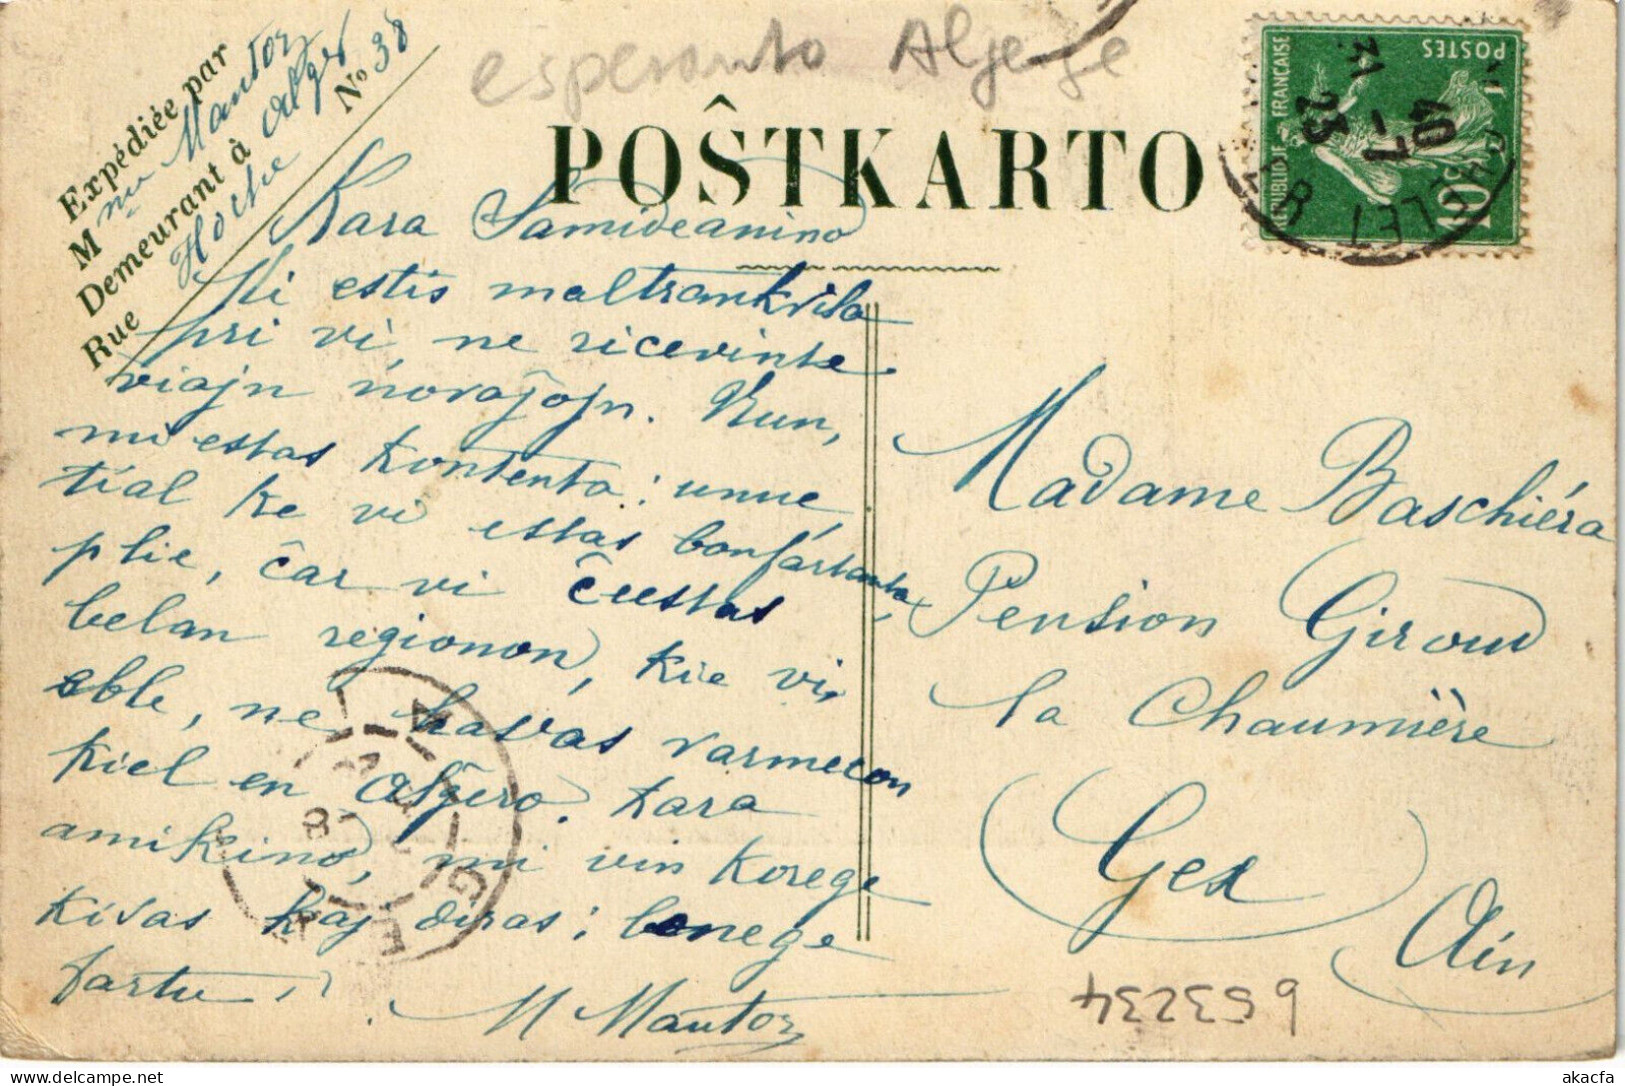 esperanto Algerge
Expédiée par
Mme Mantoz
Demeurant à Alger
Rue Hoche No 38
POŜTKARTO
POSTES
REPUBLIQUE FRANÇAISE
10c
31 -7
23
Kara Samideanino
Mi estis maltrankvila
pri vi, ne ricevinte
viajn novaĵojn. Nun,
mi estas kontenta: unue
tial ke vi estas bonfartanta,
plie, ĉar vi ĉeestas
belan regionon, kie vi,
eble, ne havas varmecon
kiel en Alĝero. Kara
amikino, mi vin korege
kisas kaj diras: bonege
fartu!
M Mantoz
Madame Baschiéra
Pension Giroud
la Chaumière
Gex
Ain
653234
akacfa